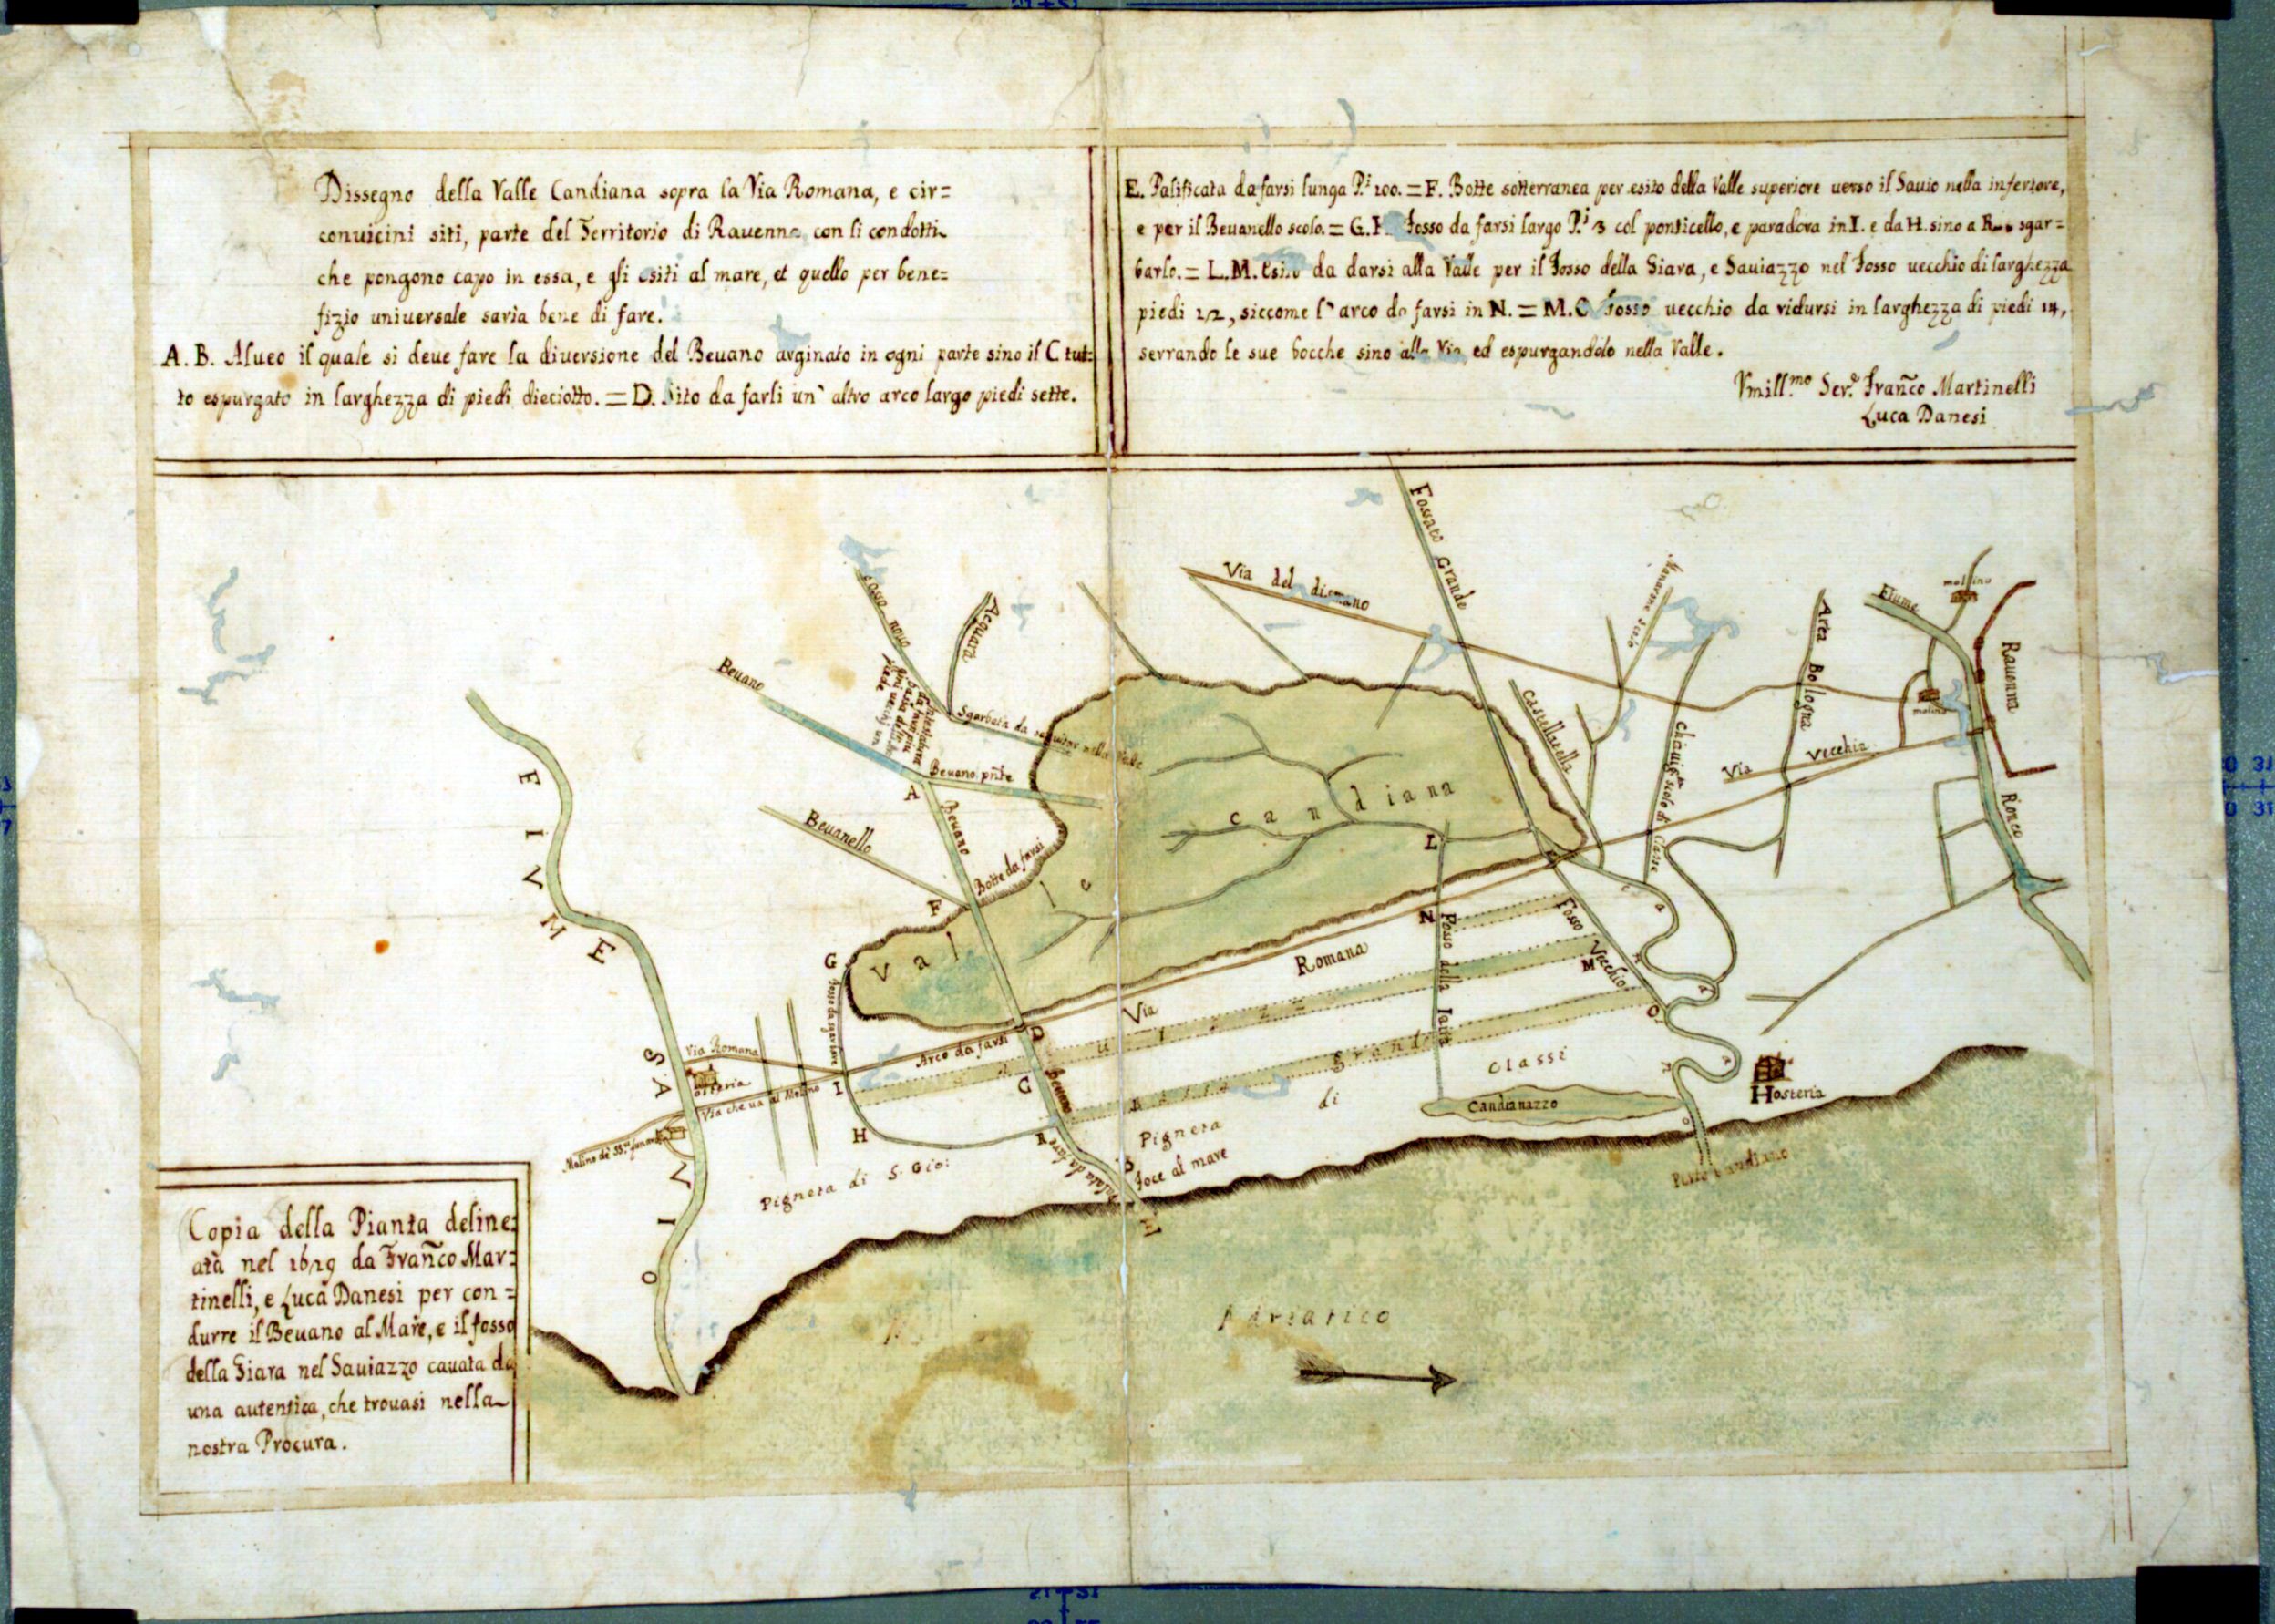 Dissegno della Valle Candiana sopra la Via Romana, e cir=
conuicini siti, parte del Territorio di Rauenna con li condotti
che pongono capo in essa, e gli esiti al mare, et quello per bene=
fizio uniuersale saria bene di fare.
A. B. Alueo il quale si deue fare la diuersione del Beuano arginato in ogni parte sino il C tut=
to espurgato in larghezza di piedi dieciotto. = D. Sito da farli un' altro arco largo piedi sette.
E. Palificata da farsi lunga P.i 100. = F. Botte sotterranea per esito della Valle superiore uerso il Sauio nella inferiore,
e per il Beuanello scolo. = G. H. fosso da farsi largo P.i 3 col ponticello, e paradora in I. e da H. sino a R sgar=
barlo. = L. M. Esito da darsi alla Valle per il fosso della Giara, e Sauiazzo nel fosso uecchio di larghezza
piedi 12, siccome l'arco da farsi in N. = M. O fosso uecchio da ridursi in larghezza di piedi 14,
serrando le sue bocche sino alla Via, ed espurgandolo nella Valle.
Vmill.mo Ser.e Fran̄co Martinelli
Luca Danesi
Fossato Grande
Via del dismano
molino
Fiume
Rauenna
Area Bologna
molino
Via Vecchia
Ronco
Castellacella
scolo di Classe
fosso nouo
Acquara
Beuano
Sgarbata da seguitar nella Valle
Beuano pn̄te
A
Beuano
Beuanello
Botte da farsi
F
G
Valle Candiana
L
N
Fosso Vecchio
M
O
Fosso della Iaira
Via Romana
D
Arco da farsi
C
Beuano
R
H
I
Via Romana
osteria
Via che ua al Molino
Pigneta di S. Gio:
Pigneta di Classi
Grande
Candianazzo
Hosteria
Porto Candiano
B
foce al mare
E
FIVME SAVIO
Adriatico
Copia della Pianta deline=
ata nel 1619 da Fran̄co Mar=
tinelli, e Luca Danesi per con=
durre il Beuano al Mare, e il fosso
della Giara nel Sauiazzo cauata da
una autentica, che trouasi nella
nostra Procura.